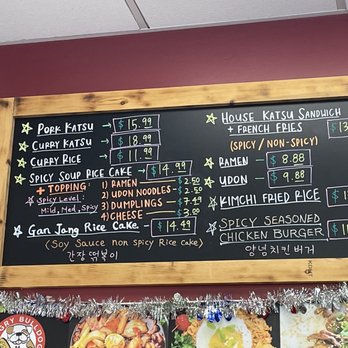 PORK KATSU → $15.99
CURRY KATSU → $18.99
CURRY RICE → $11.99
SPICY SOUP RICE CAKE → $14.99
+ TOPPING:
Spicy Level:
Mild, Med, Spicy
1) RAMEN → $2.50
2) UDON NOODLES → $2.50
3) DUMPLINGS → $7.49
4) CHEESE → $3.00
Gan Jang Rice Cake → $14.49
(Soy Sauce non spicy Rice cake)
간장 떡볶이
HOUSE KATSU SANDWICH
+ FRENCH FRIES
(SPICY / NON-SPICY)
RAMEN → $8.88
UDON → $9.88
KIMCHI FRIED RICE
SPICY SEASONED
CHICKEN BURGER
양념치킨버거